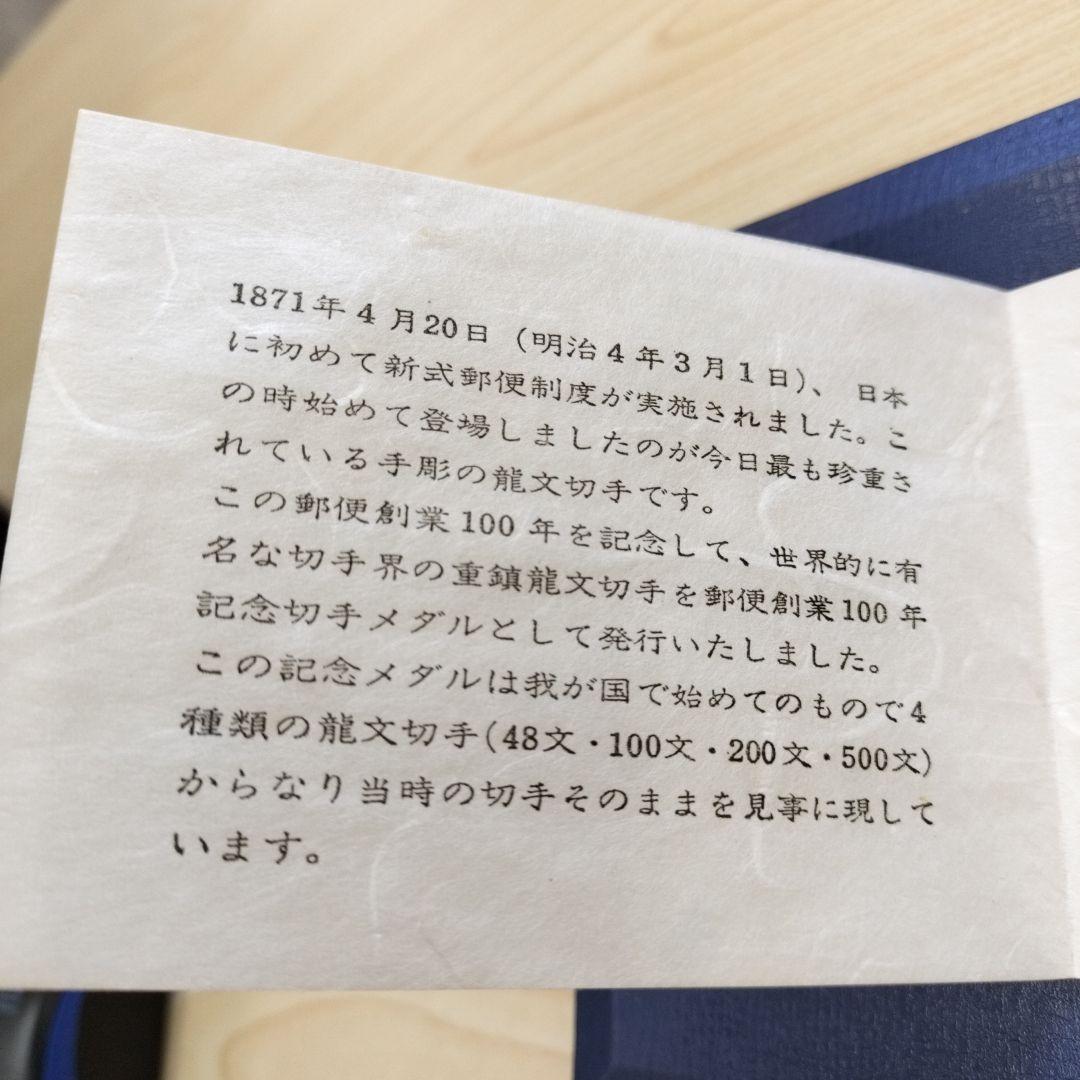 1871年4月20日（明治4年3月1日）、日本
に初めて新式郵便制度が実施されました。こ
の時始めて登場しましたのが今日最も珍重さ
れている手彫の龍文切手です。
この郵便創業100年を記念して、世界的に有
名な切手界の重鎮龍文切手を郵便創業100年
記念切手メダルとして発行いたしました。
この記念メダルは我が国で始めてのもので4
種類の龍文切手(48文・100文・200文・500文)
からなり当時の切手そのままを見事に現して
います。